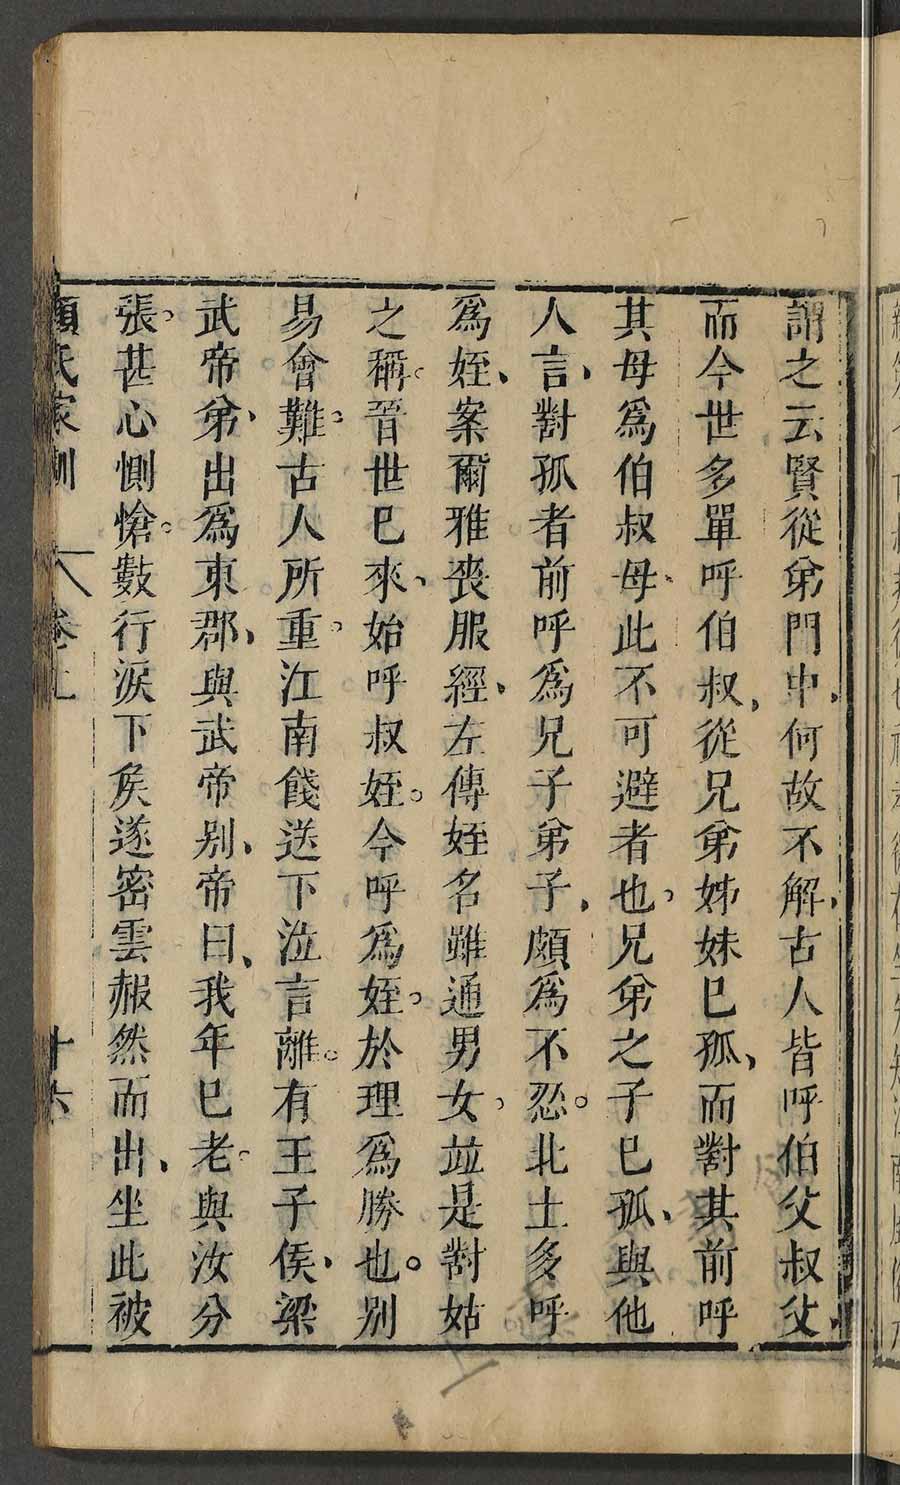 謂之云賢從弟門中何故不解古人皆呼伯父叔父
而今世多單呼伯叔從兄弟姊妹已孤而對其前呼
其母爲伯叔母此不可避者也兄弟之子已孤與他
人言對孤者前呼爲兄子弟子頗爲不忍北土多呼
爲姪案爾雅喪服經左傳姪名雖通男女並是對姑
之稱晉世已來始呼叔姪今呼爲姪於理爲勝也别
易會難古人所重江南餞送下泣言離有王子侯梁
武帝弟出爲東郡與武帝别帝曰我年已老與汝分
張甚心惻愴數行淚下侯遂密雲赧然而出坐此被
顏氏家訓 卷上 十六